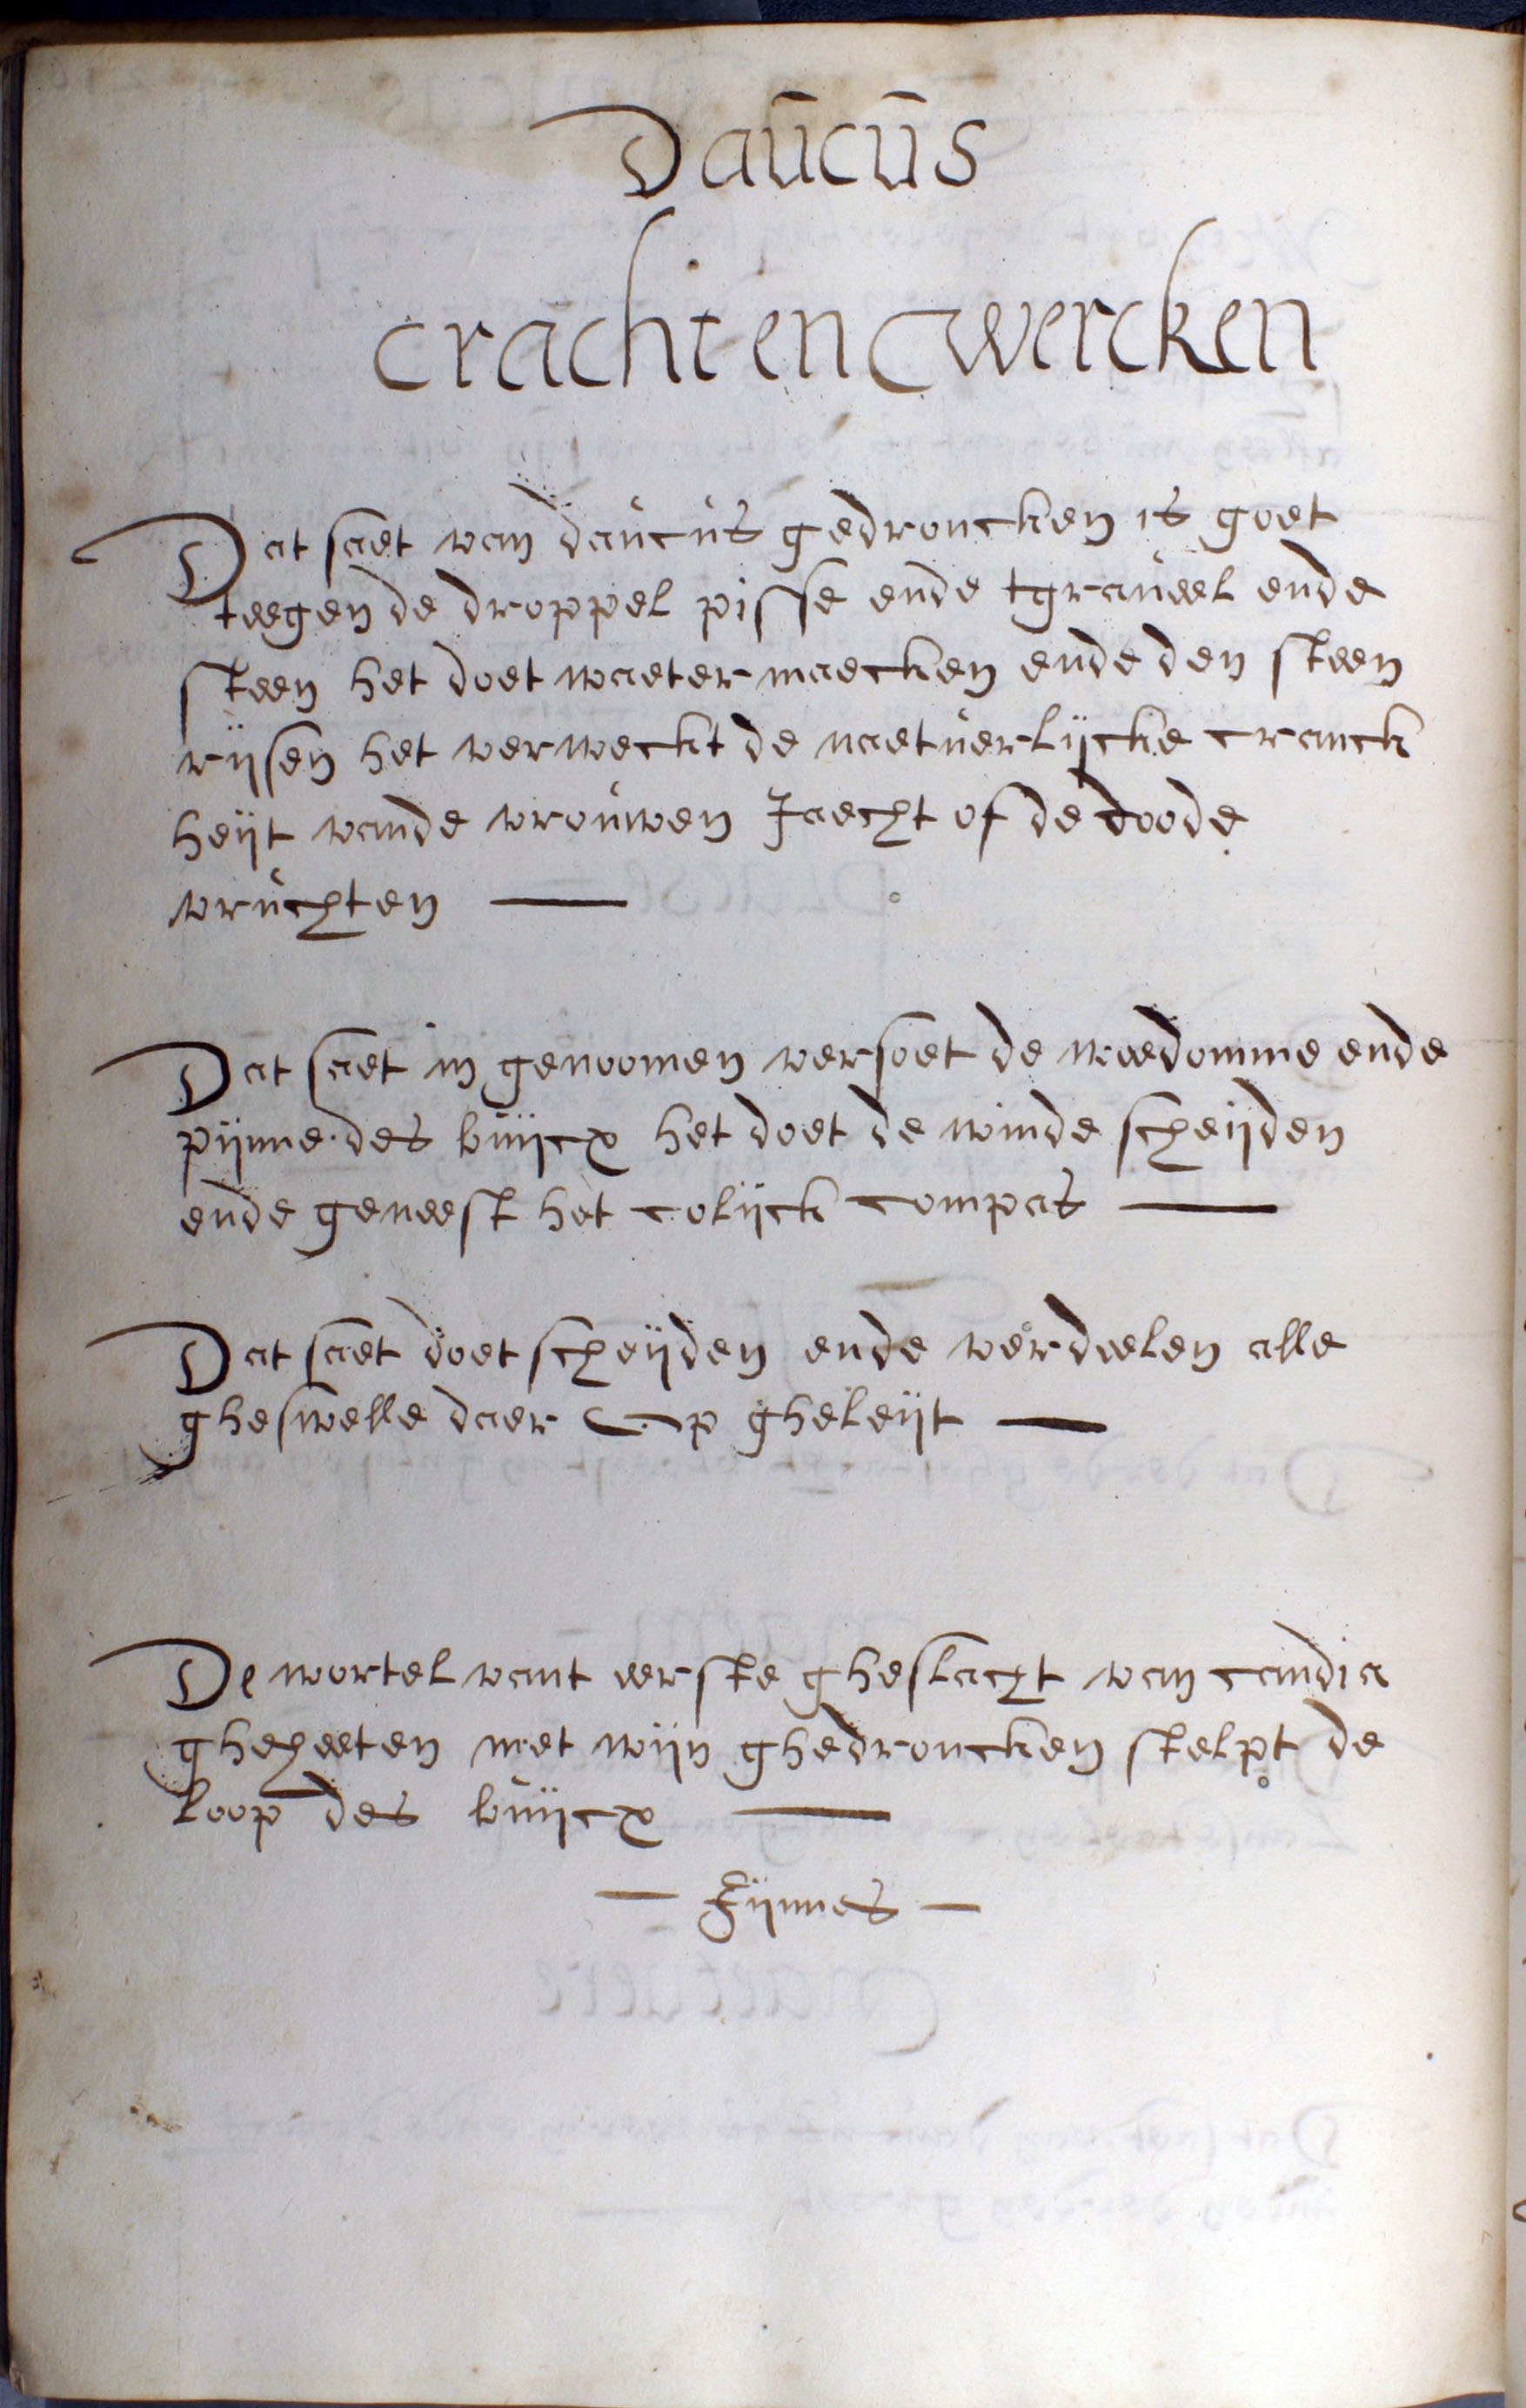 Daucus
crachten wercken
Dat saet van daucus gedroncken is goet
teegen de droppel pisse ende tgraueel ende
steen het doet waeter maecken ende den steen
rijsen het verweckt de naetuerlijcke cranck
heijt vande vrouwen Jaecht of de doode
vruchten
Dat saet in genoomen versoet de weedomme ende
pijnne des buijcx het doet de winde scheijden
ende geneest het colijck compas
Dat saet doet scheijden ende verdeelen alle
gheswelle daer op gheleijt
De wortel vant eerste gheslacht van candia
gheheeten met wijn ghedroncken stelpt de
loop des buijcx
Fijnnes